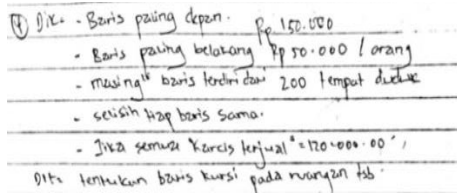 ④ Dik. - Baris paling depan. Rp 150.000
- Baris paling belakang Rp 50.000 / orang
- masing" baris terdiri dari 200 tempat duduk
- selisih tiap baris sama.
- Jika semua "karcis terjual" = 120.000.00",
Dit. tentukan baris kursi pada ruangan tsb.